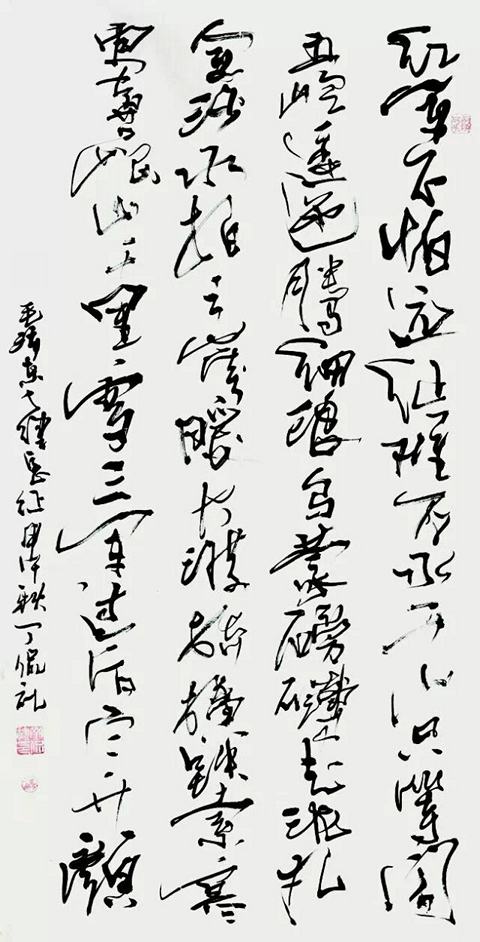 红军不怕远征难万水千山只等闲
五岭逶迤腾细浪乌蒙磅礴走泥丸
金沙水拍云崖暖大渡桥横铁索寒
更喜岷山千里雪三军过后尽开颜
毛泽东七律长征 秋丁